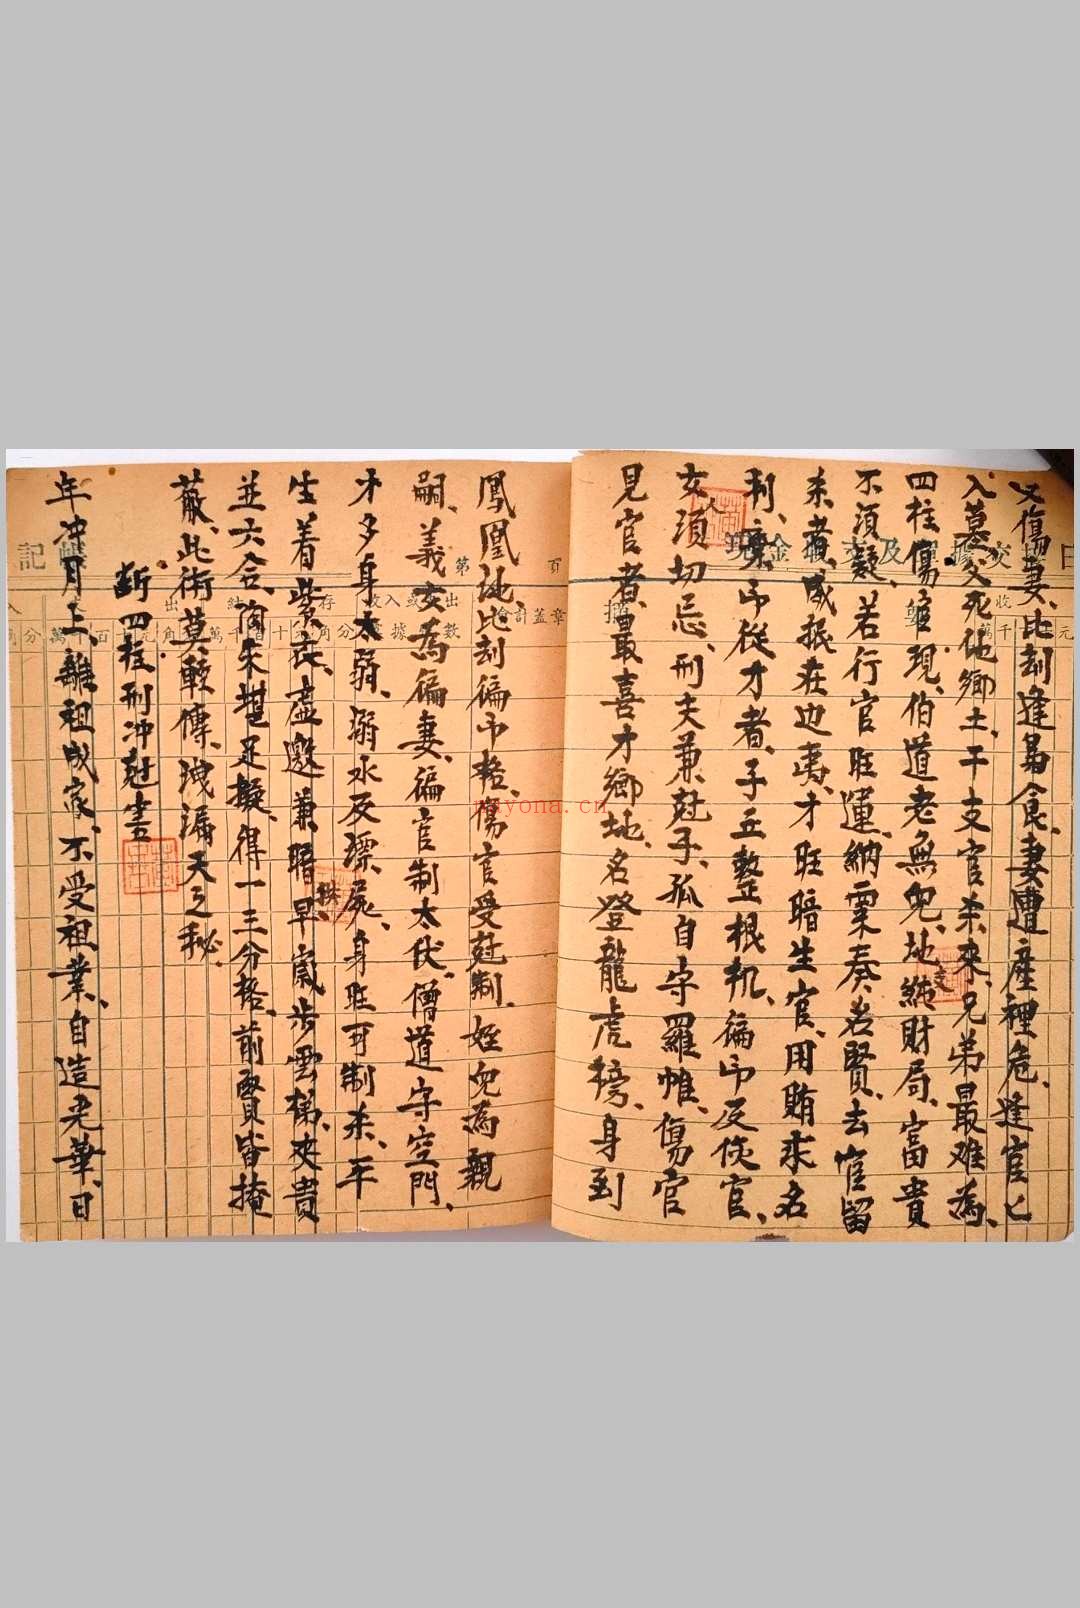 又傷妻、比刦逢梟食、妻遭產裡危、逢官已
入墓、父死他鄉土、干支官杀來、兄弟最难為、
四柱傷雖現、伯道老無兒、地支純財局、富貴
不須疑、若行官旺運、納粟奏名賢、去官留
杀者、威振在边夷、才旺暗生官、用賄求名
利、棄印從才者、子丑整根机、偏印反侠官、
女人須切忌、刑夫兼尅子、孤自守羅帷、傷官
見官者、最喜才鄉地、名登龍虎榜、身到
鳳凰池、比刦偏印格、傷官受尅制、姪兒為親
嗣、義女為偏妻、偏官制太伏、僧道守空門、
才多身太弱、溺水反漂屍、身旺可制杀、平
生着紫衣、虛邀兼暗拱、早歲步雲梯、夾貴
並六合、陶朱堪足擬、得一三分格、前賢皆掩
蔽、此術莫輕傳、洩漏天之秘、
断四柱刑冲尅害
年冲月上、離祖成家、不受祖業、自造光華、日
第 頁
存
結
出
收入或出
數據
會計蓋章
萬千百十元角分
現金
及
收
mayona.cn